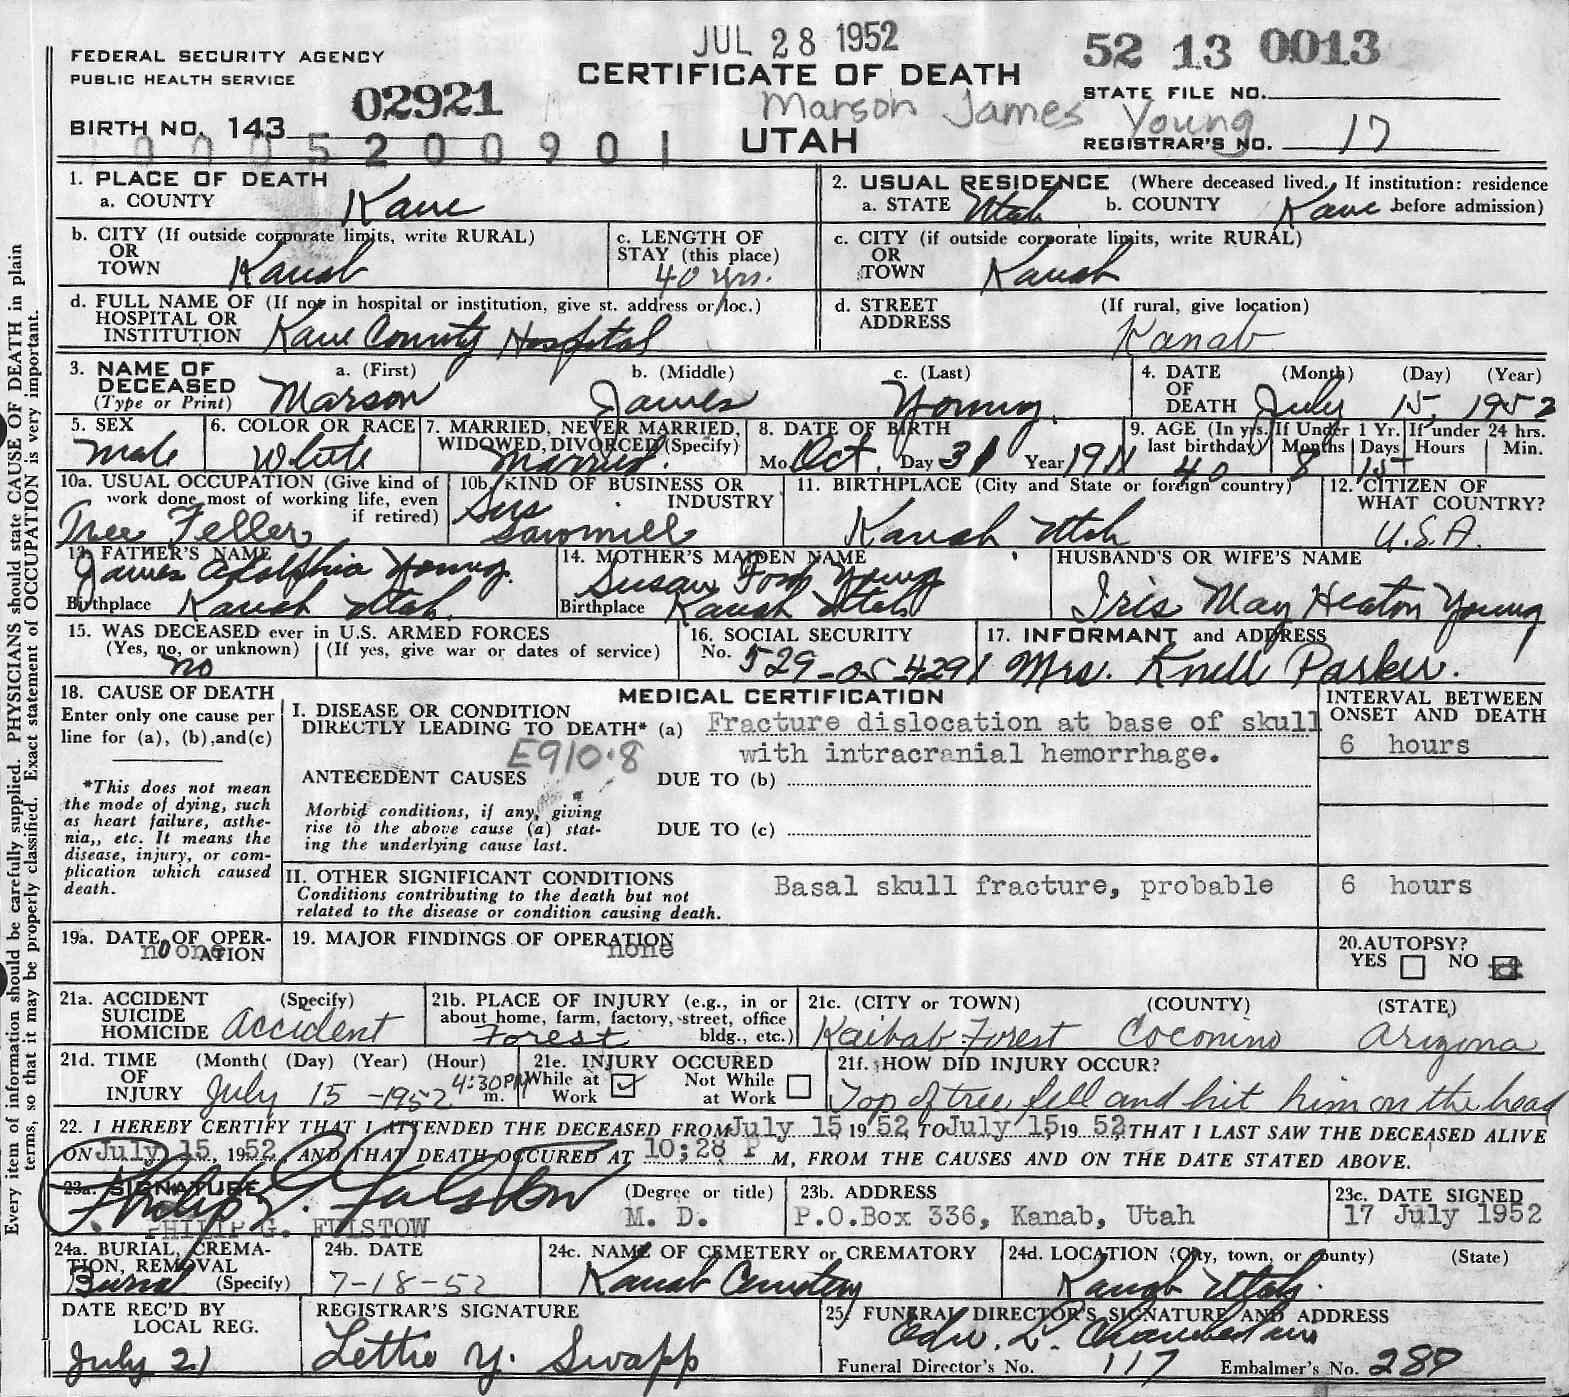 JUL 28 1952
FEDERAL SECURITY AGENCY
PUBLIC HEALTH SERVICE
CERTIFICATE OF DEATH
52 13 0013
STATE FILE NO.
02921
Marson James Young
BIRTH NO. 143
UTAH
REGISTRAR'S NO. 17
0005200901
1. PLACE OF DEATH
a. COUNTY Kane
2. USUAL RESIDENCE (Where deceased lived. If institution: residence before admission)
a. STATE Utah b. COUNTY Kane
b. CITY (If outside corporate limits, write RURAL)
OR
TOWN Kanab
c. LENGTH OF
STAY (this place)
40 yrs.
c. CITY (if outside corporate limits, write RURAL)
OR
TOWN Kanab
d. FULL NAME OF (If not in hospital or institution, give st. address or loc.)
HOSPITAL OR
INSTITUTION Kane County Hospital
d. STREET (If rural, give location)
ADDRESS Kanab
3. NAME OF DECEASED
(Type or Print)
a. (First) Marson
b. (Middle) James
c. (Last) Young
4. DATE OF DEATH
(Month) (Day) (Year)
July 15, 1952
5. SEX
male
6. COLOR OR RACE
White
7. MARRIED, NEVER MARRIED,
WIDOWED, DIVORCED (Specify)
Married.
8. DATE OF BIRTH
Mo. Oct. Day 31 Year 1911
9. AGE (In yrs. last birthday) 40
If Under 1 Yr. Months 8 Days 15
If under 24 hrs. Hours Min.
10a. USUAL OCCUPATION (Give kind of
work done most of working life, even
if retired)
Tree Feller
10b. KIND OF BUSINESS OR
INDUSTRY
Sawmill
11. BIRTHPLACE (City and State or foreign country)
Kanab Utah
12. CITIZEN OF
WHAT COUNTRY?
U.S.A.
13. FATHER'S NAME
James Adolphia Young.
Birthplace Kanab Utah.
14. MOTHER'S MAIDEN NAME
Susan Young
Birthplace Kanab Utah
HUSBAND'S OR WIFE'S NAME
Iris May Heaton Young
15. WAS DECEASED ever in U.S. ARMED FORCES
(Yes, no, or unknown) (If yes, give war or dates of service)
no
16. SOCIAL SECURITY
No. 529-05-4291
17. INFORMANT and ADDRESS
Mrs. Knell Parker.
18. CAUSE OF DEATH
Enter only one cause per
line for (a), (b), and (c)
*This does not mean
the mode of dying, such
as heart failure, asthe-
nia,, etc. It means the
disease, injury, or com-
plication which caused
death.
MEDICAL CERTIFICATION
INTERVAL BETWEEN
ONSET AND DEATH
I. DISEASE OR CONDITION
DIRECTLY LEADING TO DEATH* (a) Fracture dislocation at base of skull
with intracranial hemorrhage.
6 hours
E910.8
ANTECEDENT CAUSES DUE TO (b)
Morbid conditions, if any, giving
rise to the above cause (a) stat-
ing the underlying cause last.
DUE TO (c)
II. OTHER SIGNIFICANT CONDITIONS
Conditions contributing to the death but not
related to the disease or condition causing death.
Basal skull fracture, probable
6 hours
19a. DATE OF OPER-
ATION
none
19. MAJOR FINDINGS OF OPERATION
none
20. AUTOPSY?
YES NO
21a. ACCIDENT (Specify)
SUICIDE
HOMICIDE Accident
21b. PLACE OF INJURY (e.g., in or
about home, farm, factory, street, office
bldg., etc.)
Forest
21c. (CITY or TOWN) (COUNTY) (STATE)
Kaibab Forest Coconino Arizona
21d. TIME (Month) (Day) (Year) (Hour)
OF
INJURY July 15 -1952 4:30 PM m.
21e. INJURY OCCURED
While at Work Not While at Work
21f. HOW DID INJURY OCCUR?
Top of tree fell and hit him on the head
22. I HEREBY CERTIFY THAT I ATTENDED THE DECEASED FROM July 15 19 52 TO July 15 19 52 THAT I LAST SAW THE DECEASED ALIVE
ON July 15, 1952, AND THAT DEATH OCCURED AT 10:28 P M, FROM THE CAUSES AND ON THE DATE STATED ABOVE.
23a. SIGNATURE
Philip G. Fulstow
PHILIP G. FULSTOW
(Degree or title)
M. D.
23b. ADDRESS
P.O.Box 336, Kanab, Utah
23c. DATE SIGNED
17 July 1952
24a. BURIAL, CREMA-
TION, REMOVAL
(Specify)
Burial
24b. DATE
7-18-52
24c. NAME OF CEMETERY or CREMATORY
Kanab Cemetery
24d. LOCATION (City, town, or county) (State)
Kanab Utah.
DATE REC'D BY
LOCAL REG.
July 21
REGISTRAR'S SIGNATURE
Lettie Y. Swapp
25. FUNERAL DIRECTOR'S SIGNATURE AND ADDRESS
Funeral Director's No. 117 Embalmer's No. 289
Every item of information should be carefully supplied. PHYSICIANS should state CAUSE OF DEATH in plain
terms, so that it may be properly classified. Exact statement of OCCUPATION is very important.